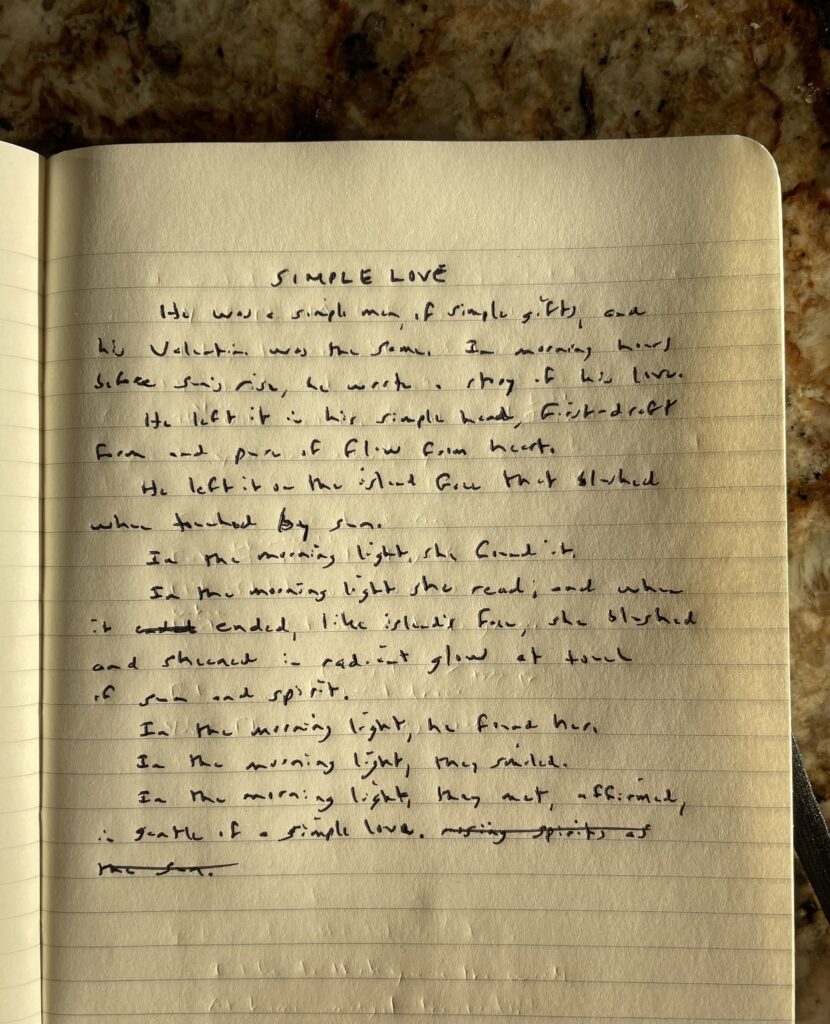 SIMPLE LOVE
He was a simple man, of simple gifts, and
his Valentine was the same. In morning hours
before sun's rise, he wrote a story of his love.
He left it in his simple hand, first-draft
form and pure of flow from heart.
He left it on the island face that blushed
when touched by sun.
In the morning light, she found it.
In the morning light she read; and when
it ended, like island's face, she blushed
and sheened in radiant glow at touch
of sun and spirit.
In the morning light, he found her.
In the morning light, they smiled.
In the morning light, they met, affirmed,
in gentle of a simple love. rising spirits as
the sun.